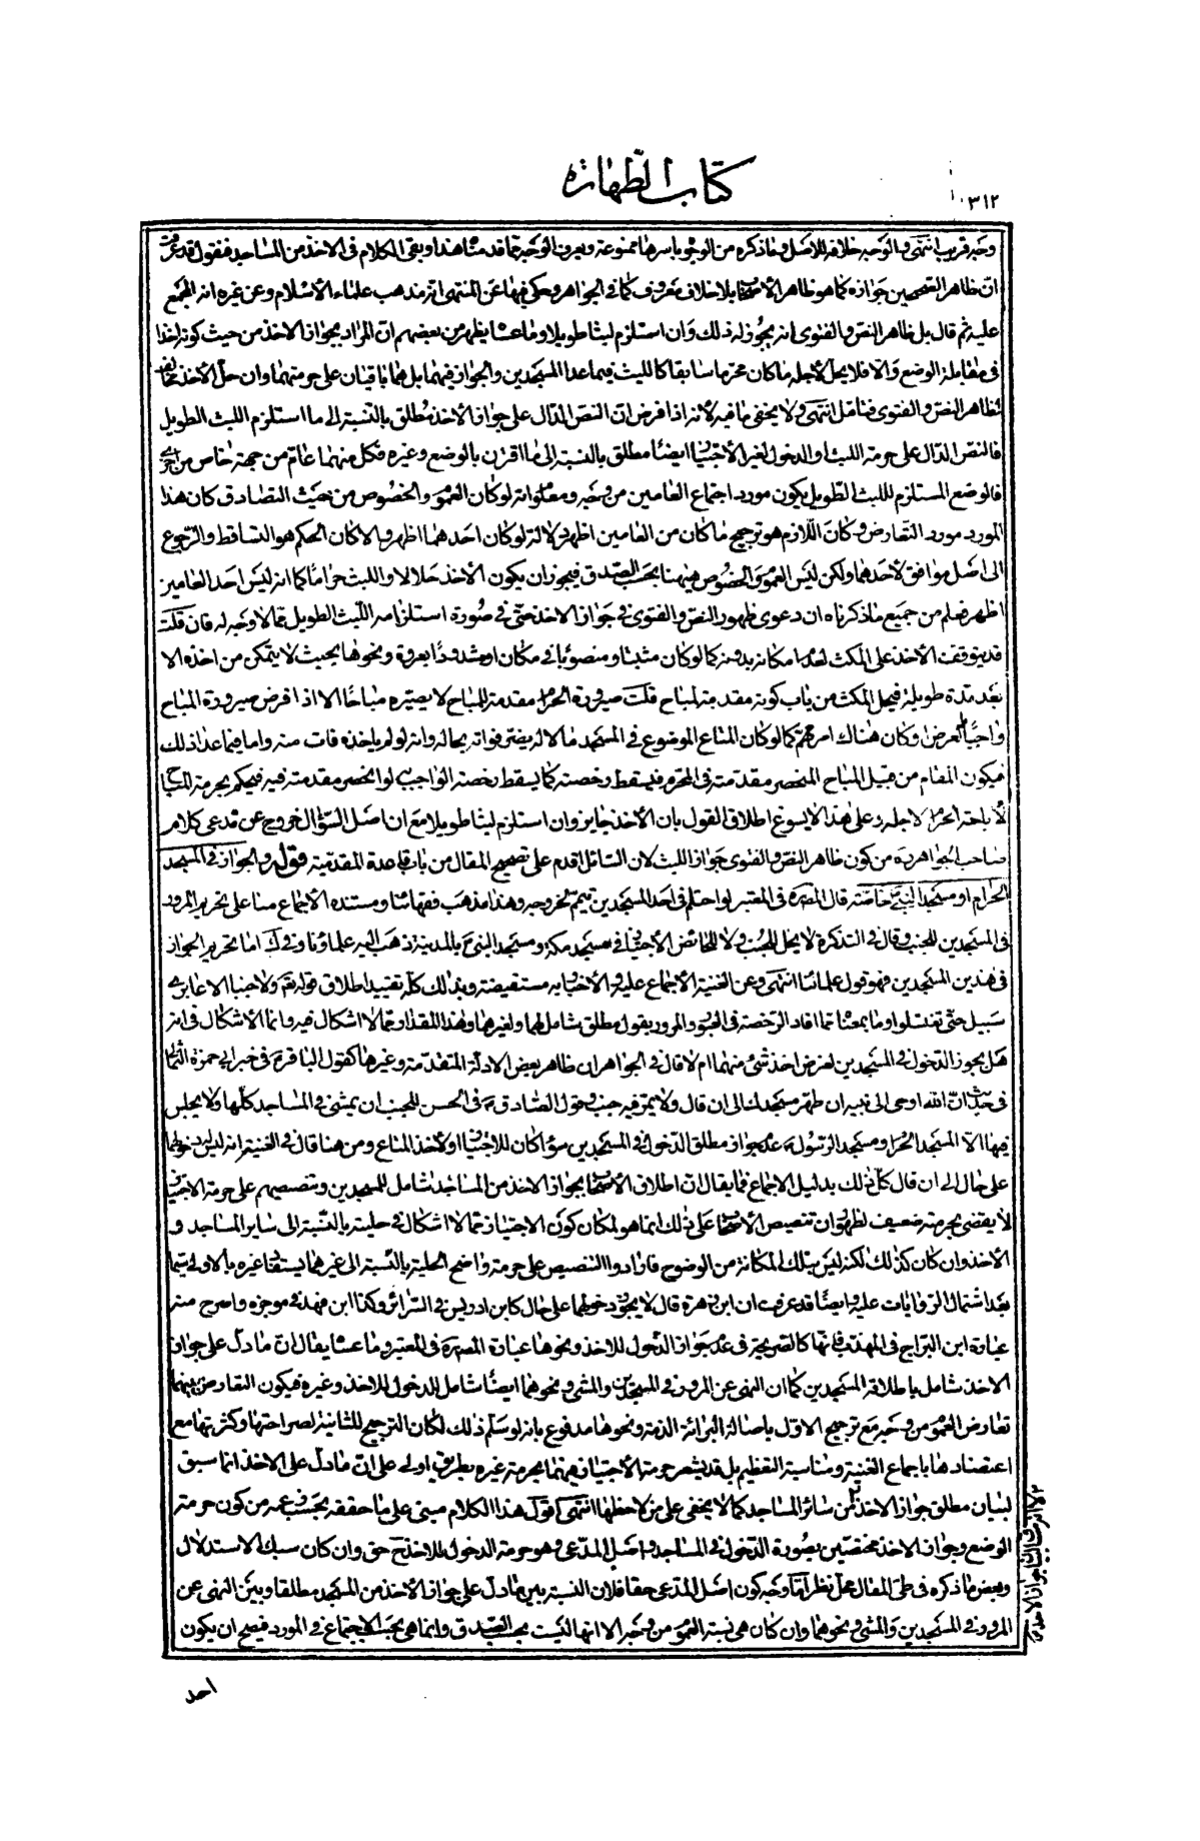 كتاب الطهارة
٣١٢
وجه قريب انتهى والوجه خلافه للاصل وما ذكره من الوجوه باسرها ممنوعة ويعرف الوجه مما قدمناه هذا وبقى الكلام فى الاخذ من المساجد فنقول قد عرفت
ان ظاهر الصحيحين جوازه كما هو ظاهر الأصحاب بلا خلاف معروف كما فى الجواهر وحكى فيها عن المنتهى انه مذهب علماء الأسلام وعن غيره انه المجمع
عليه ثم قال بل ظاهر النص والفتوى انه يجوز له ذلك وان استلزم لبثا طويلا وما عساه يظهر من بعضهم ان المراد بجواز الاخذ من حيث كونه اخذا
فى مقابلة الوضع والا فلا يحل لأجله ما كان محرما سابقا كاللبث فيما عدا المسجدين والجواز فيهما بل هما باقيان على حرمتهما وان حل الأخذ مخالف
لظاهر النص والفتوى فتامل انتهى ولا يخفى ما فيه لأنه اذا فرض ان النص الدال على جواز الأخذ مطلق بالنسبة الى ما استلزم اللبث الطويل
فالنص الدال على حرمة اللبث او الدخول لغير الأجتياز ايضا مطلق بالنسبة الى ما اقترن بالوضع وغيره فكل منهما عام من جهة خاص من اخرى
فالوضع المستلزم للبث الطويل يكون مورد اجتماع العامين من وجه ومعلوم انه لو كان العموم والخصوص من حيث التصادق كان هذا
المورد مورد التعارض وكان اللازم هو ترجيح ما كان من العامين اظهر دلالة لو كان احدهما اظهر والا كان الحكم هو التساقط والرجوع
الى اصل موافق لأحدهما ولكن ليس العموم والخصوص هيهنا بحسب الصدق فيجوز ان يكون الأخذ حلالا واللبث حراما كما انه ليس احد العامين
اظهر فعلم من جميع ما ذكرناه ان دعوى ظهور النص والفتوى فى جواز الاخذ حتى فى صورة استلزامه اللبث الطويل مما لا وجه له فان قلت
قد يتوقف الأخذ على المكث لعدم امكانه بدونه كما لو كان مثبتا ومنصوبا فى مكان او مشدودا بعروة ونحوها بحيث لا يتمكن من اخذه الا
بعد مدة طويلة فيحل المكث من باب كونه مقدمة لمباح قلت صيرورة الحرام مقدمة للمباح لا يصيره مباحا الا اذا فرض صيرورة المباح
واجبا لعرض وكان هناك امر مهم كما لو كان المتاع الموضوع فى المسجد مالا له يضر فواته بحاله وانه لو لم ياخذه فات منه واما فيما عدا ذلك
فيكون المقام من قبيل المباح المنحصر مقدمته فى المحرم فيسقط رخصته كما يسقط رخصة الواجب لو انحصر مقدمته فيه فيحكم بحرمة المباح
لا باباحة الحرام لاجله وعلى هذا لا يسوغ اطلاق القول بان الأخذ جايز وان استلزم لبثا طويلا مع ان اصل السؤال خروج عن مدعى كلام
صاحب الجواهر ره من كون ظاهر النص والفتوى جواز اللبث لان السائل اقدم على تصحيح المقال من باب قاعدة المقدمية قوله والجواز فى المسجد
الحرام او مسجد النبى ص خاصة قال المص ره فى المعتبر لو احتلم فى احد المسجدين تيمم لخروجه وهذا مذهب فقهائنا ومستنده الأجماع منا على تحريم المرور
فى المسجدين للجنب وقال فى التذكرة لا يحل للجنب ولا للحائض الأجتياز فى مسجد مكة ومسجد النبى ص بالمدينة ذهب اليه علماؤنا وفى ك اما تحريم الجواز
فى هذين المسجدين فهو قول علمائنا انتهى وعن الغنية الأجماع عليه والأخبار به مستفيضة وبذلك كله تقييد اطلاق قوله تعالى ولا جنبا الا عابرى
سبيل حتى تغتسلوا وما بمعناه مما افاد الرخصة فى العبور والمرور بقول مطلق شامل لهما ولغيرهما وهذا القدر مما لا اشكال فيه وانما الأشكال فى انه
هل يجوز الدخول فى المسجدين لغرض اخذ شئ منهما ام لا قال فى الجواهر ان ظاهر بعض الادلة المتقدمة وغيرها كقول الباقر ع فى خبر ابى حمزة الثمالى
فى حديث ان الله اوحى الى نبيه ان طهر مسجدك الى ان قال ولا يمر فيه جنب وقول الصادق ع فى الحسن للجنب ان يمشى فى المساجد كلها ولا يجلس
فيها الا المسجد الحرام ومسجد الرسول ص عدم جواز مطلق الدخول فى المسجدين سواء كان للاجتياز او لأخذ المتاع ومن هنا قال فى الغنية انه ليس له دخولهما
على حال الى ان قال كل ذلك بدليل الاجماع فما يقال ان اطلاق الأصحاب جواز الاخذ من المساجد شامل للمسجدين وتنصيصهم على حرمة الاجتياز
لا يقضى بحرمته ضعيف لظهور ان تنصيص الأصحاب على ذلك انما هو لمكان كون الاجتياز مما لا اشكال فى حليته بالنسبة الى سائر المساجد و
الأخذ وان كان كذلك لكنه ليس بتلك المكانة من الوضوح فارادوا التنصيص على حرمة واضح الحلية بالنسبة الى غيرهما ليستفاد غيره بالاولى سيما
بعد اشتمال الروايات عليه وايضا قد عرفت ان ابن زهرة قال لا يجوز دخولهما على حال كابن ادريس فى السرائر وكذا ابن فهد فى موجزه واصرح منه
عبارة ابن البراج فى المهذب فانها كالصريحة فى عدم جواز الدخول للاخذ ونحوها عبارة المص ره فى المعتبر وما عساه يقال ان ما دل على جواز
الاخذ شامل باطلاقه المسجدين كما ان النهى عن المرور فى المسجدين والمشى ونحوهما ايضا شامل للدخول للاخذ وغيره فيكون التعارض بينهما
تعارض العموم من وجه مع ترجيح الاول باصالة البرائة الذمة ونحوها مدفوع بانه لو سلم ذلك لكان الترجيح للثانية لصراحتها وكثرتها مع
اعتضادها باجماع الغنية ومناسبة التعظيم بل قد يشعر حرمة الأجتياز فيهما بحرمة غيره بطريق اولى على ان ما دل على الاخذ انما سبق
لبيان مطلق جواز الاخذ من سائر المساجد كما لا يخفى على من لاحظها انتهى اقول هذا الكلام مبنى على ما حققه بحسب زعمه من كون حرمة
الوضع وجواز الاخذ مختصتين بصورة الدخول فى المساجد واصل المدعى وهو حرمة الدخول للاخذ حق وان كان سبك الاستدلال
وبعض ما ذكره فى طى المقال محل نظر اما وجه كون اصل المدعى حقا فلان النسبة بين ما دل على جواز الأخذ من المسجد مطلقا وبين النهى عن
المرور فى المسجدين والمشى ونحوهما وان كان هى نسبة العموم من وجه الا انها ليست بحسب الصدق وانما هى بحسب الاجتماع فى المورد فيصح ان يكون
احد